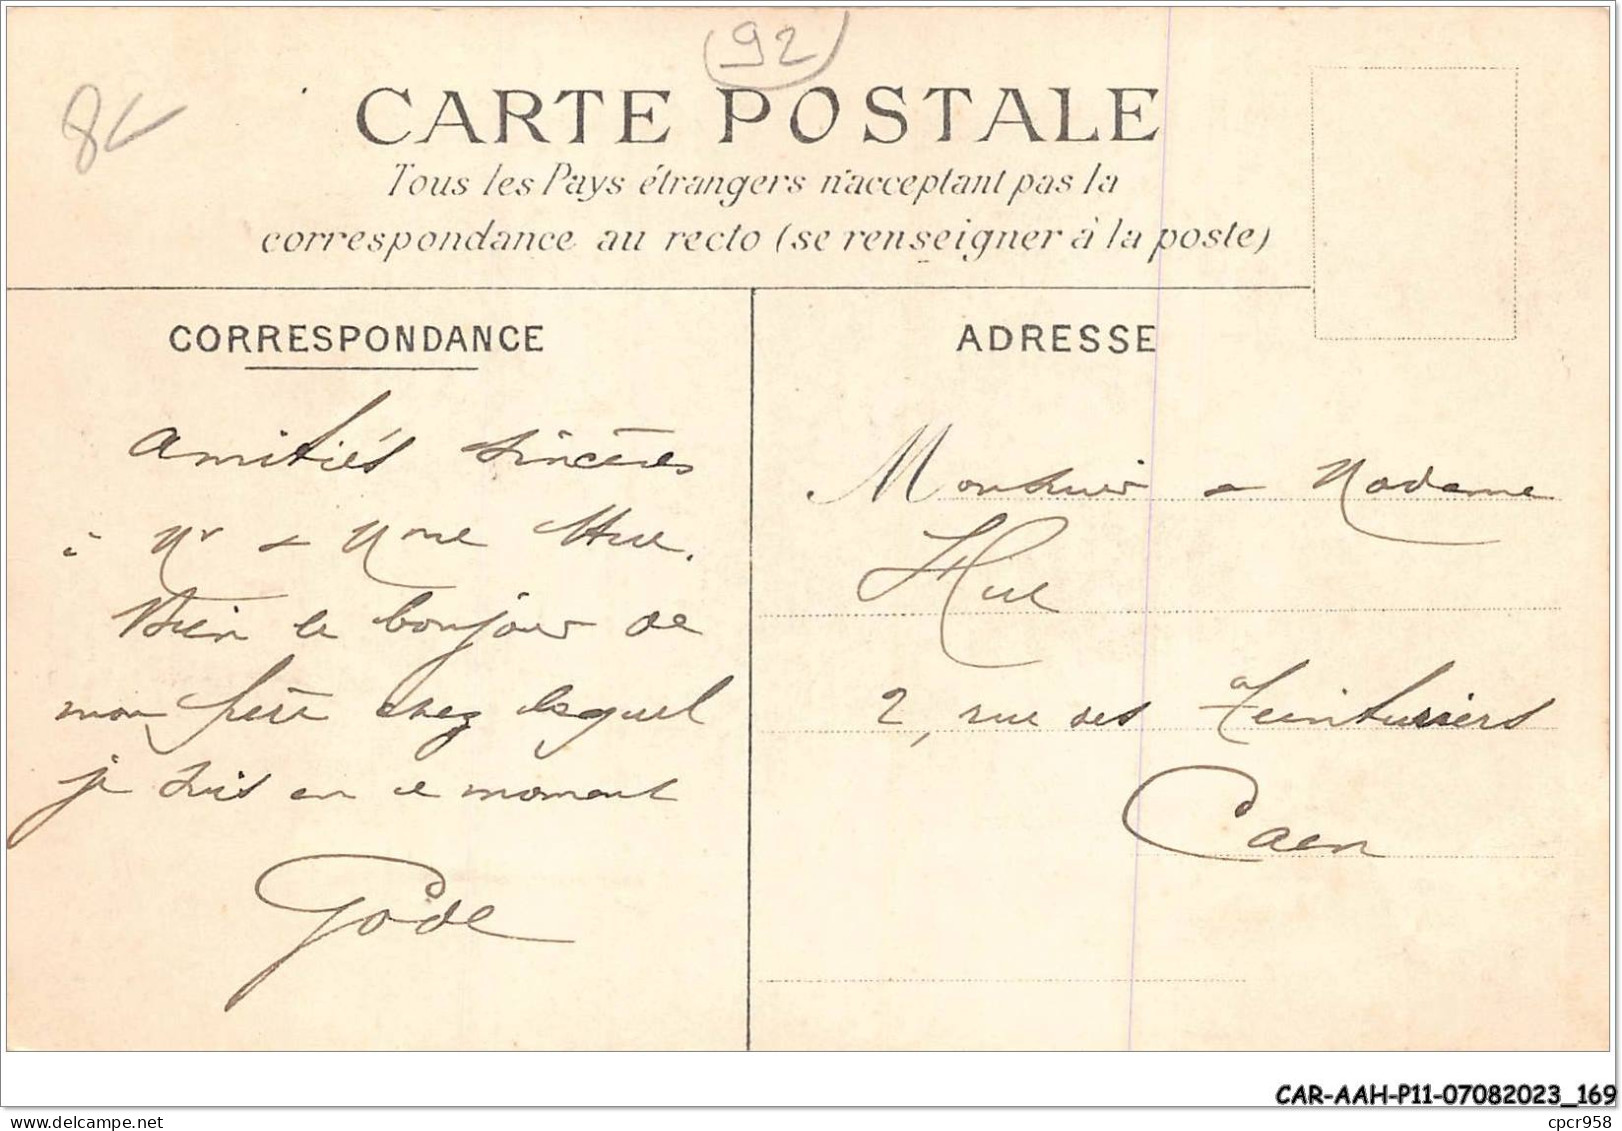 92
CARTE POSTALE
Tous les Pays étrangers n'acceptant pas la
correspondance au recto (se renseigner à la poste)
CORRESPONDANCE
amitiés sincères
à Mr & Mme Hue.
Bien le bonjour de
mon frère chez lequel
je suis en ce moment
Gode
ADRESSE
Monsieur & Madame
Hue
2, rue des Teinturiers
Caen
CAR-AAH-P11-07082023_169
cpcr958